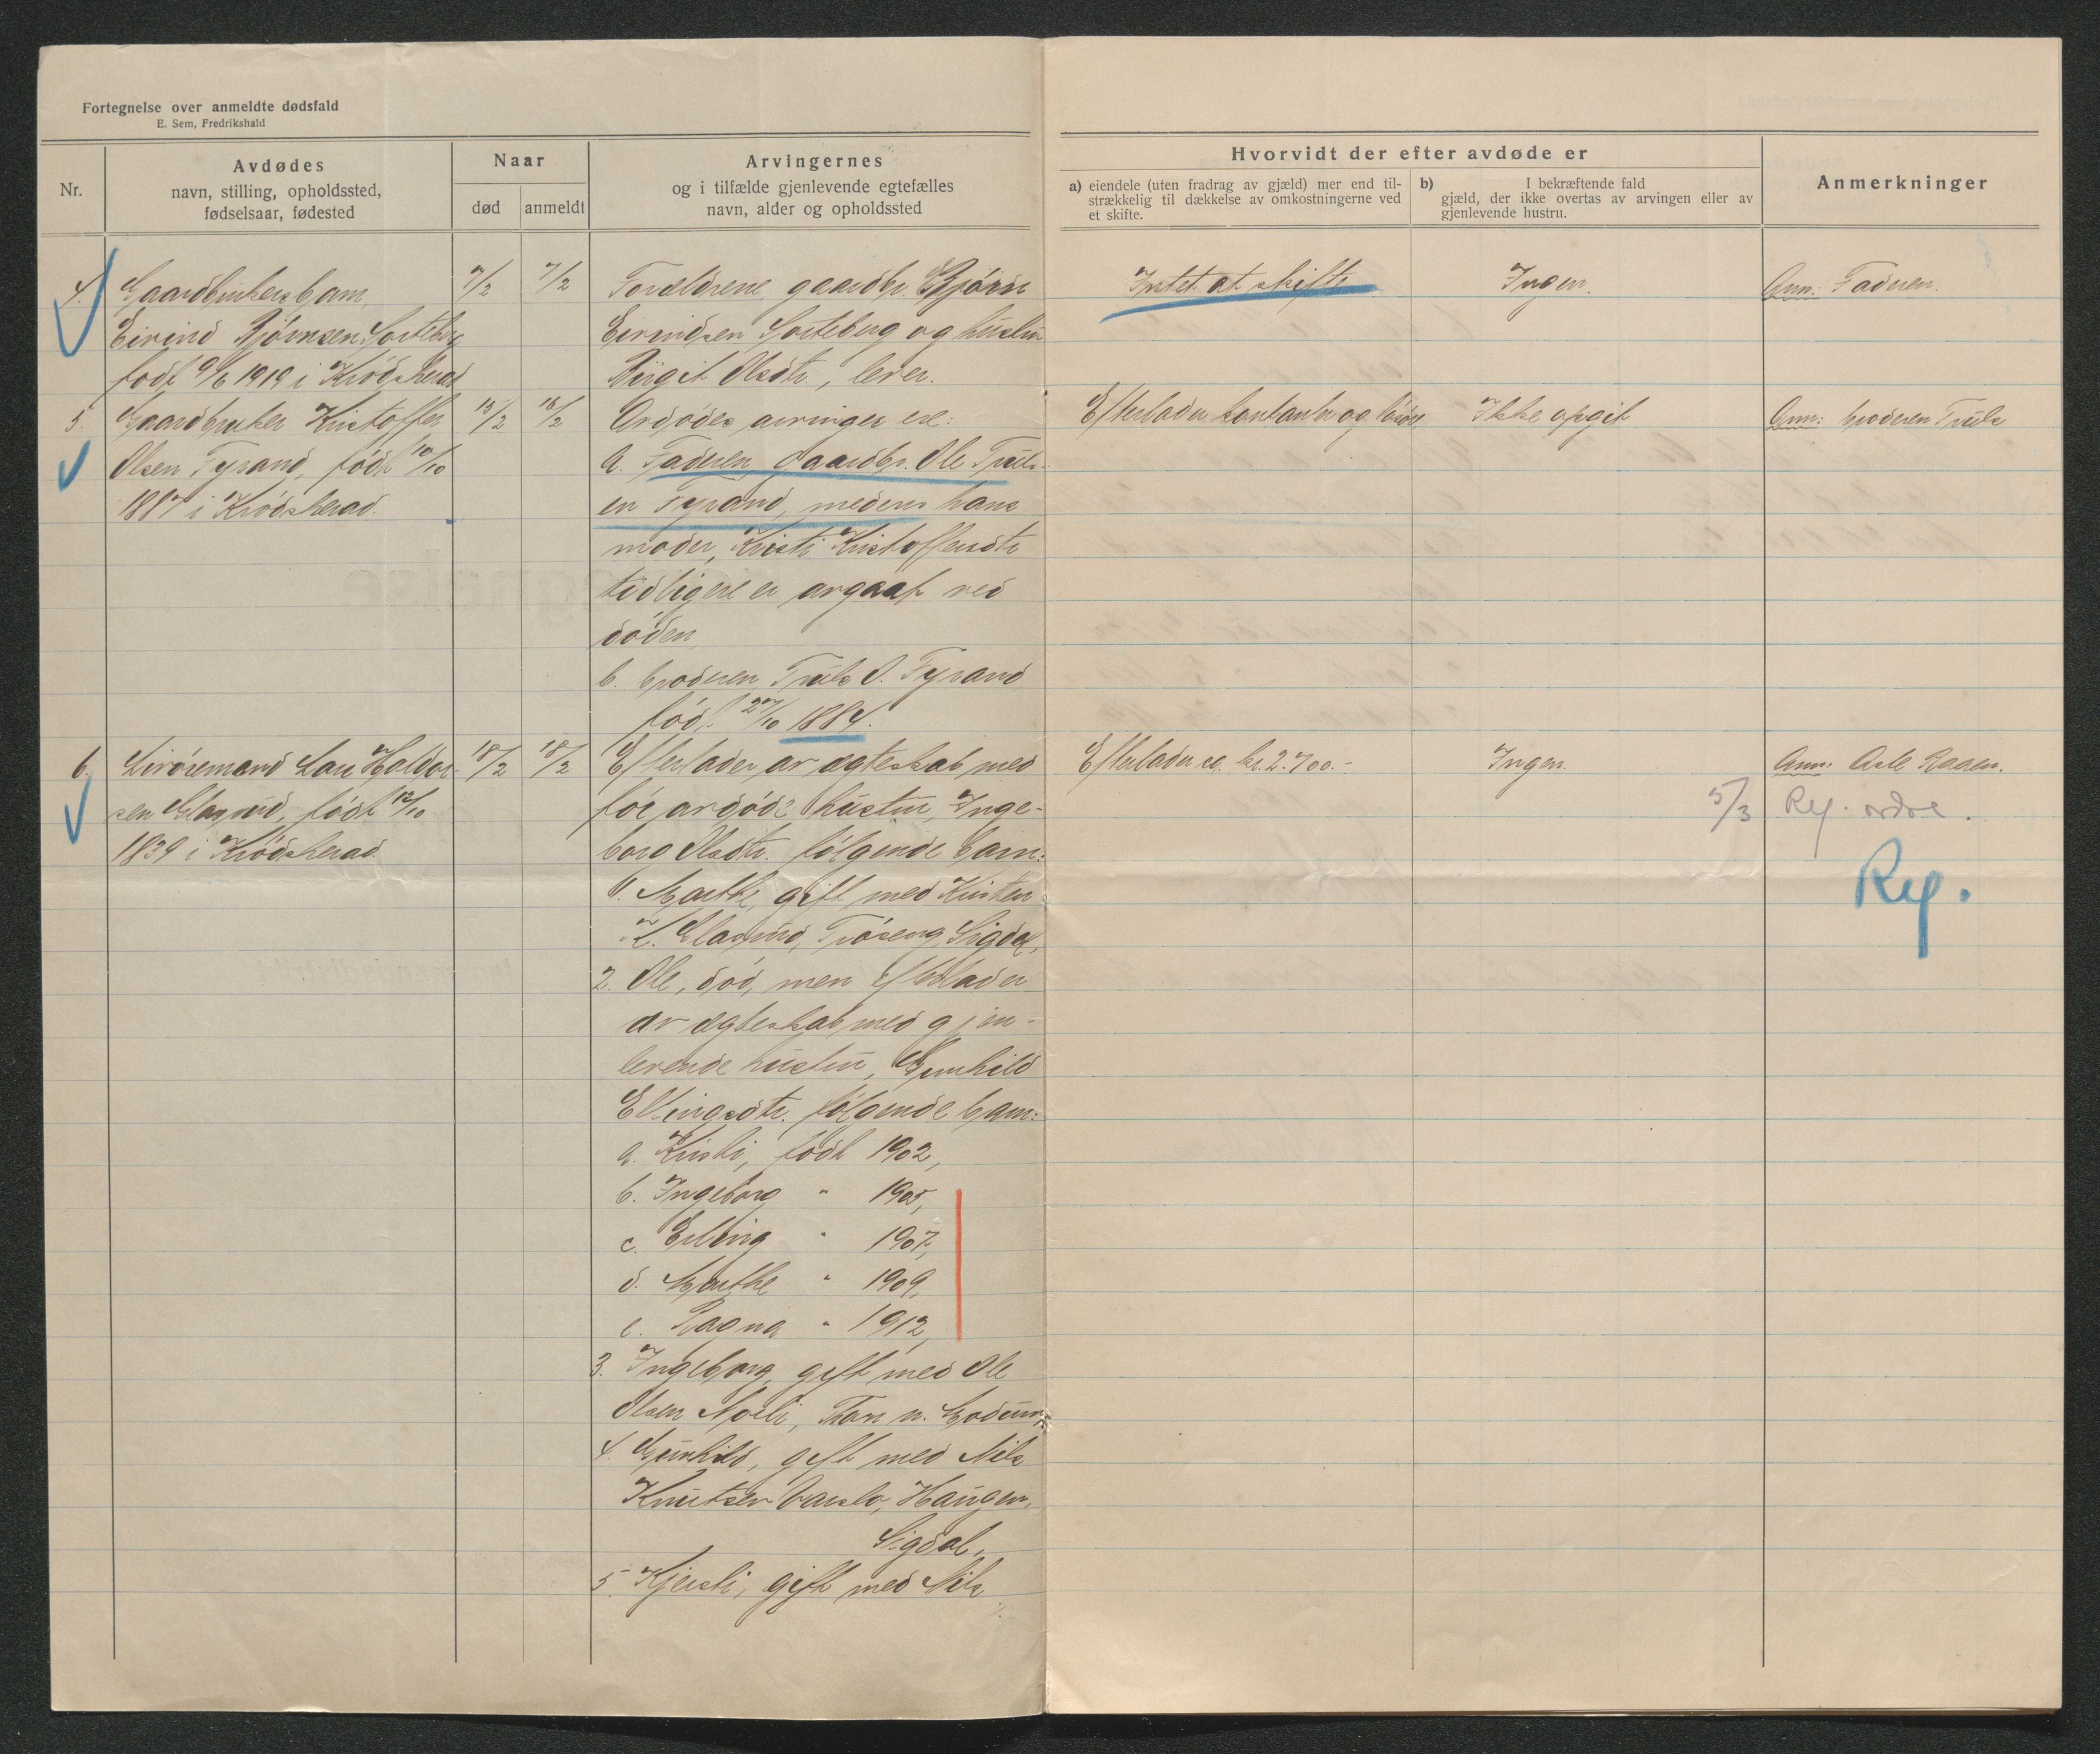 Fortegnelse over anmeldte dødsfald
E. Sem, Fredrikshald
Nr.
Avdødes
navn, stilling, opholdssted,
fødselsaar, fødested
Naar
død
anmeldt
Arvingernes
og i tilfælde gjenlevende egtefælles
navn, alder og opholdssted
Hvorvidt der efter avdøde er
a) eiendele (uten fradrag av gjæld) mer end til-
strækkelig til dækkelse av omkostningerne ved
et skifte.
b) I bekræftende fald
gjæld, der ikke overtas av arvingen eller av
gjenlevende hustru.
Anmerkninger
4.
Gaardbrukersbarn,
Eivind Bjørnsen Sorteberg
født 9/6 1919 i Krødsherad
7/2
7/2
Forældrene, gaardbr. Bjørn
Eivindsen Sorteberg og hustru
Birgit Olsdtr., lever.
Intet at skifte
Ingen.
Anm: Faderen.
5.
Gaardbruker Kristoffer
Olsen Fyrand, født 10/10
1887 i Krødsherad.
15/2
16/2
Avdødes arvinger er:
a. Faderen, gaardbr. Ole Truls-
en Fyrand, medens hans
moder, Kristi Kristoffersdtr
tidligere er avgaat ved
døden,
b. broderen Truls O. Fyrand
født 27/10 1884.
Efterlader kontanter og løsøre
Ikke opgit
Anm: broderen Truls
6.
Livøremand Lars Haldor-
sen Glasrud, født 12/10
1839 i Krødsherad.
18/2
18/2
Efterlader av egteskab med
før avdøde hustru, Inge-
borg Olsdtr. følgende barn:
1. Marthe, gift med Kristen
K. Glasrud, Trøseng, Sigdal,
2. Ole, død, men efterlader
av egteskab med gjen-
levende hustru, Gunhild
Ellingsdtr. følgende barn:
a. Kirsti, født 1902,
b. Ingeborg " 1905,
c. Erling " 1907,
d. Marthe " 1909,
e. Ragna " 1912,
3. Ingeborg, gift med Ole
Olsen Moeli, n. Modum,
4. Gunhild, gift med Nils
Knutsen Varslo, Haugen,
Sigdal,
5. Kjersti, gift med Nils
Efterlader ca. kr. 2.700.-
Ingen.
Anm: Asle Raaen.
5/3 Reg. ordre.
Reg.